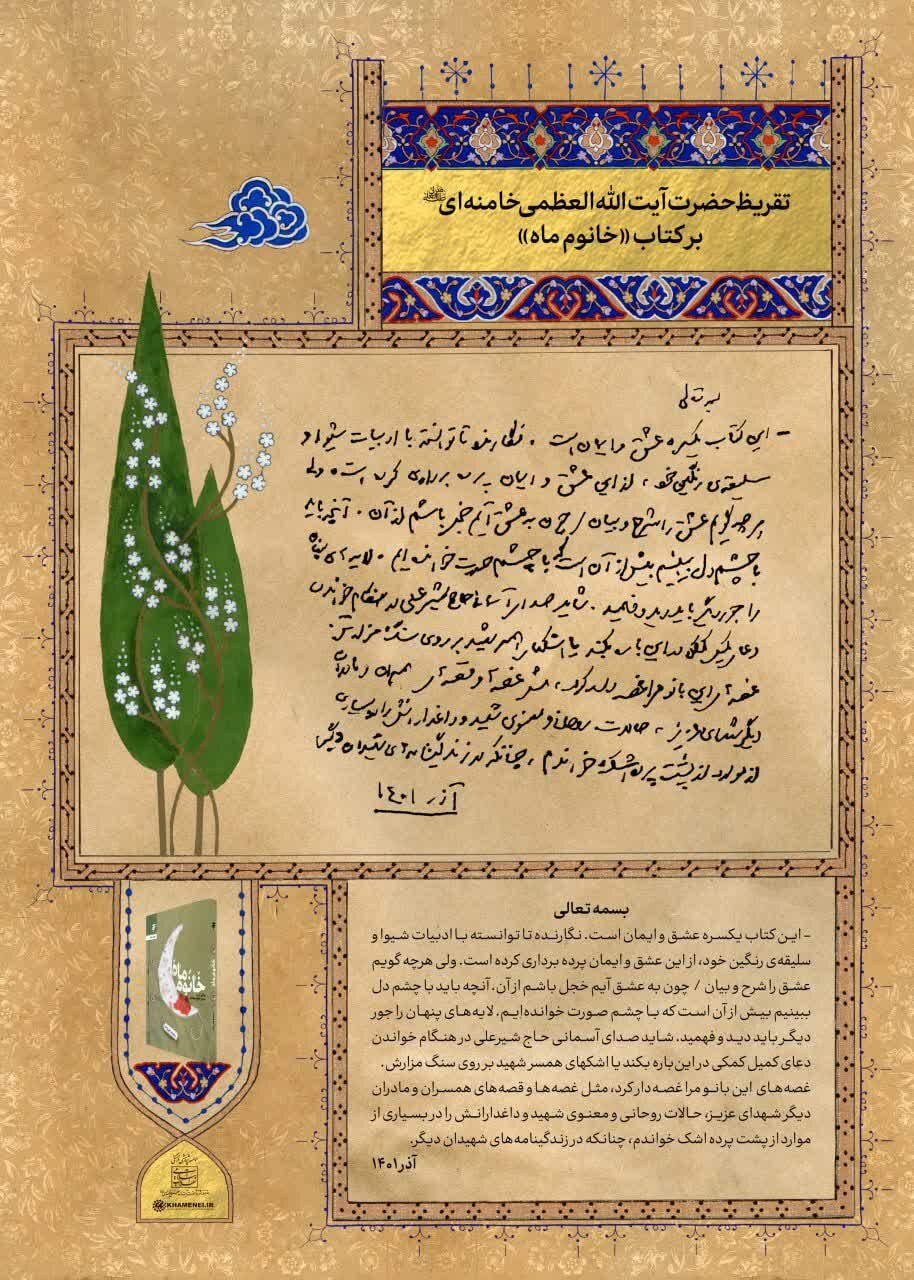 تقریظ حضرت آیت الله العظمی خامنه ای
بر کتاب «خانوم ماه»
بسمه تعالی
- این کتاب یکسره عشق و ایمان است. نگارنده تا توانسته با ادبیات شیوا و
سلیقه‌ی رنگین خود، از این عشق و ایمان پرده برداری کرده است ولی
هر چه گویم عشق را شرح و بیان / چون به عشق آیم خجل باشم از آن. آنچه باید
با چشم دل ببینیم بیش از آن است که با چشم صورت خوانده ایم. لایه های پنهان
را جور دیگر باید دید و فهمید. شاید صدای آسمانی حاج شیرعلی در هنگام خواندن
دعای کمیل کمکی در این باره بکند یا اشکهای همسر شهید بر روی سنگ مزارش.
غصه های این بانو مرا غصه دار کرد، مثل غصه ها و قصه های همسران و مادران
دیگر شهدای عزیز، حالات روحانی و معنوی شهید و داغدارانش را در بسیاری
از موارد از پشت پرده اشک خواندم، چنانکه در زندگینامه های شهیدان دیگر.
آذر ۱۴۰۱
بسمه تعالی
- این کتاب یکسره عشق و ایمان است. نگارنده تا توانسته با ادبیات شیوا و
سلیقه‌ی رنگین خود، از این عشق و ایمان پرده برداری کرده است. ولی هرچه گویم
عشق را شرح و بیان / چون به عشق آیم خجل باشم از آن. آنچه باید با چشم دل
ببینیم بیش از آن است که با چشم صورت خوانده‌ایم. لایه‌های پنهان را جور
دیگر باید دید و فهمید. شاید صدای آسمانی حاج شیرعلی در هنگام خواندن
دعای کمیل کمکی در این باره بکند یا اشکهای همسر شهید بر روی سنگ مزارش.
غصه‌های این بانو مرا غصه‌دار کرد، مثل غصه‌ها و قصه‌های همسران و مادران
دیگر شهدای عزیز، حالات روحانی و معنوی شهید و داغدارانش را در بسیاری از
موارد از پشت پرده اشک خواندم، چنانکه در زندگینامه‌های شهیدان دیگر.
آذر ۱۴۰۱
خانوم ماه
KHAMENEI.IR